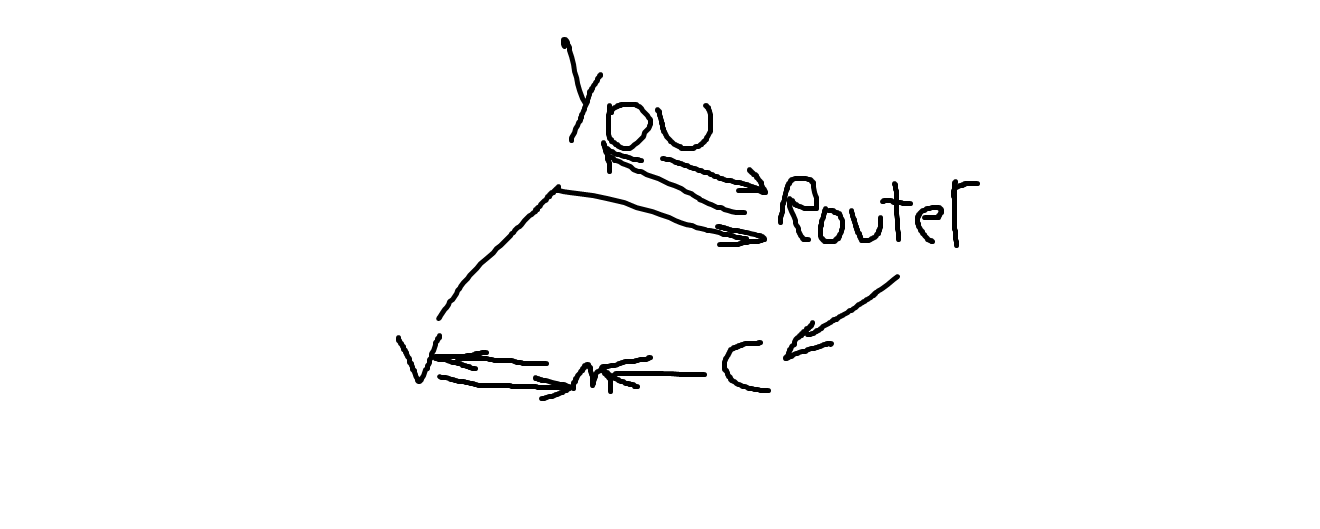 You
Router
V m C